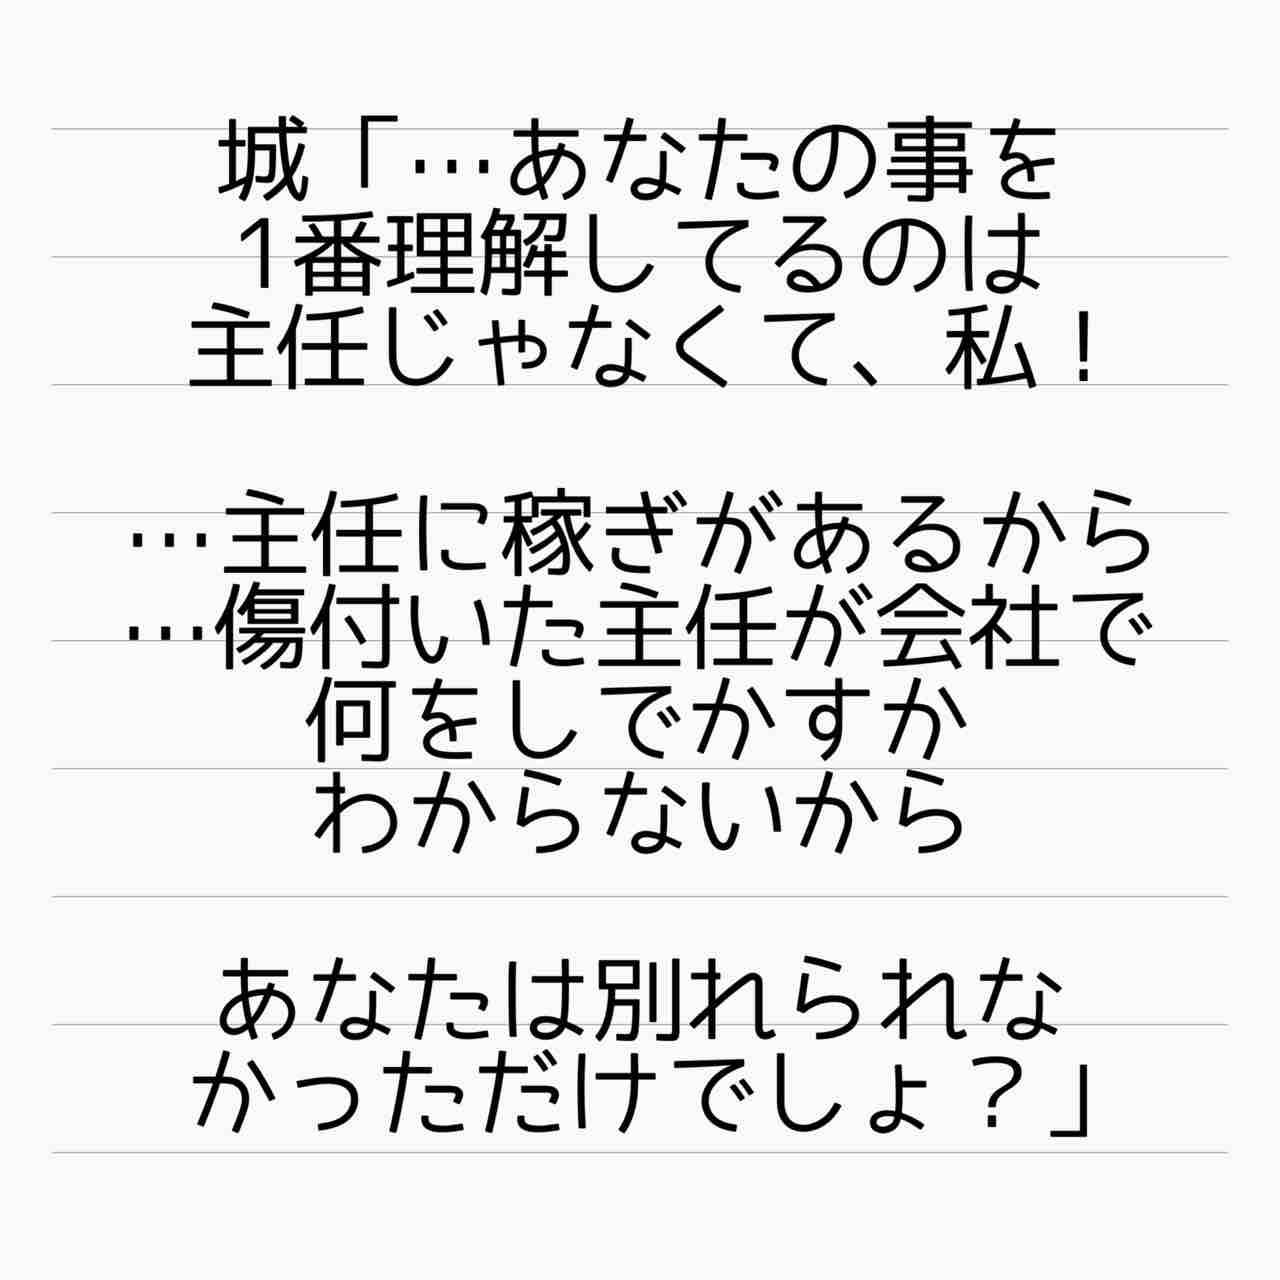 城「…あなたの事を
1番理解してるのは
主任じゃなくて、私！
…主任に稼ぎがあるから
…傷付いた主任が会社で
何をしでかすか
わからないから
あなたは別れられな
かっただけでしょ？」